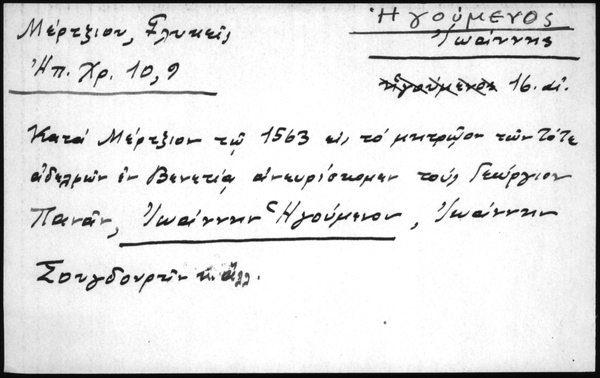 Μέρτζιου, Γλυκεῖς
Ἠπ. Χρ. 10, 9
Ἡγούμενος
Ἰωάννης
ἡγούμενος 16. αἰ.
Κατά Μέρτζιον τῷ 1563 εἰς τό μητρῷον τῶν τότε
ἀδελφῶν ἐν Βενετίᾳ ἀνευρίσκομεν τούς Γεώργιον
Πανᾶν, Ἰωάννην Ἡγούμενον, Ἰωάννην
Σουγδουρῆν κ. ἄλλ.